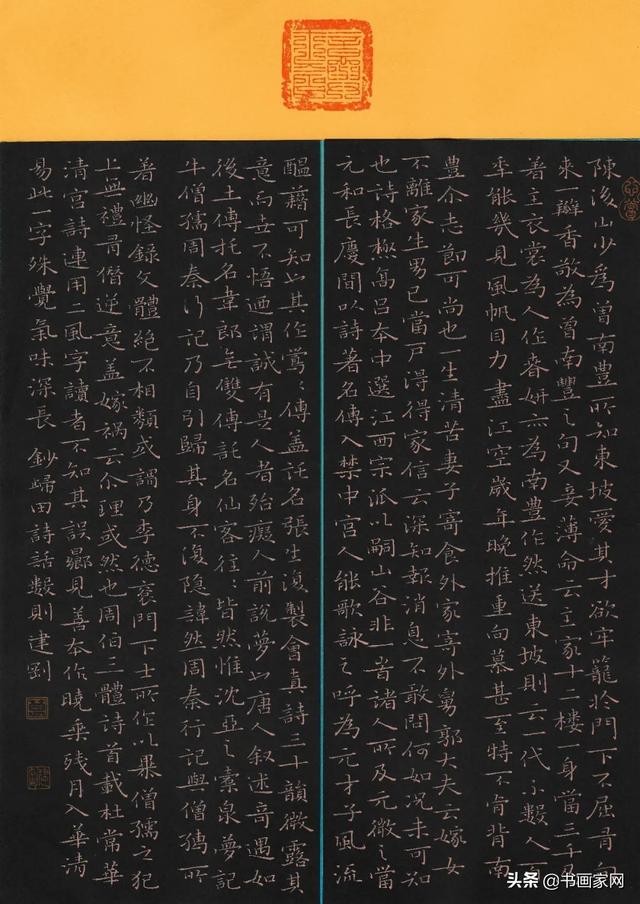 陳後山少為曾南豐所知東坡愛其才欲牢籠於門下不屈有向
來一瓣香敬為曾南豐之句又妾薄命云主家十二樓一身當三千及
著主衣裳為人作春妍亦為南豐作然送東坡則云一代不數人百
年能幾見風帆目力盡江空歲年晚推重向慕甚至特不肯背南
豐尒志節可尚也一生清苦妻子寄食外家寄外舅郭大夫云嫁女
不離家生男已當戶得得家信云深知報消息不敢問何如況未可知
也詩格極高呂本中選江西宗派以嗣山谷非一昔諸人所及元微之當
元和長慶間以詩著名傳入禁中宮人能歌詠之呼為元才子風流
醞藉可知也其作鶯〻傳蓋託名張生復製會真詩三十韻微露其
意而世不悟迺謂誠有是人者殆癡人前說夢也唐人叙述奇遇如
後土傳托名韋郎無雙傳託名仙客往〻皆然惟沈亞之素泉夢記
牛僧孺周秦行記乃自引歸其身不復隐諱然周秦行記與僧孺所
著幽怪錄文體絕不相類或謂乃李德裒門下士所作以暴僧孺之犯
上無禮有僭逆意蓋嫁禍云尒理或然也周伯三體詩首載杜常華
清宮詩連用二風字讀者不知其誤曏見善本作曉乘残月入華清
易此一字殊覺氣味深長 鈔歸田詩話數則建劉
头条 @书画家网